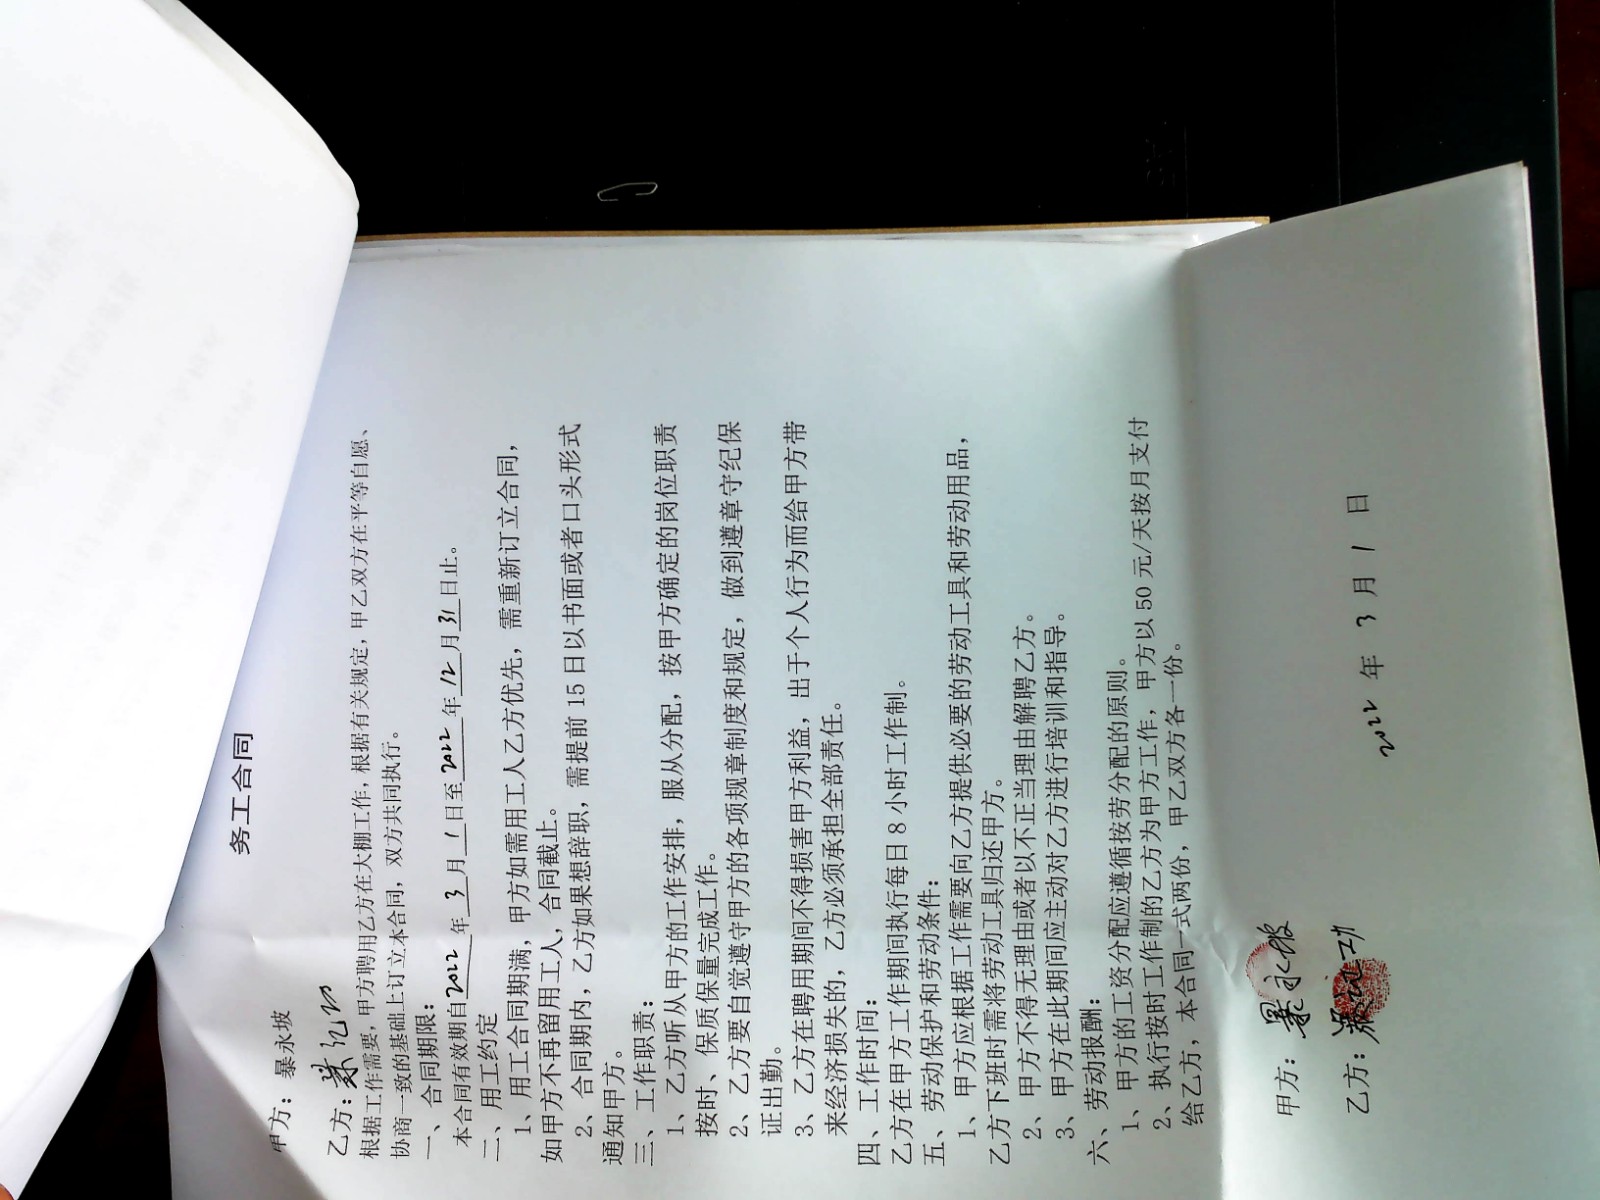 务工合同
甲方：暴永坡
乙方：
根据工作需要，甲方聘用乙方在大棚工作，根据有关规定，甲乙双方在平等自愿、
协商一致的基础上订立本合同，双方共同执行。
一、合同期限：
本合同有效期自2022年3月1日至2022年12月31日止。
二、用工约定
1、用工合同期满，甲方如需用工人乙方优先，需重新订立合同，
如甲方不再留用工人，合同截止。
2、合同期内，乙方如果想辞职，需提前15日以书面或者口头形式
通知甲方。
三、工作职责：
1、乙方听从甲方的工作安排，服从分配，按甲方确定的岗位职责
按时、保质保量完成工作。
2、乙方要自觉遵守甲方的各项规章制度和规定，做到遵章守纪保
证出勤。
3、乙方在聘用期间不得损害甲方利益，出于个人行为而给甲方带
来经济损失的，乙方必须承担全部责任。
四、工作时间：
乙方在甲方工作期间执行每日8小时工作制。
五、劳动保护和劳动条件：
1、甲方应根据工作需要向乙方提供必要的劳动工具和劳动用品，
乙方下班时需将劳动工具归还甲方。
2、甲方不得无理由或者以不正当理由解聘乙方。
3、甲方在此期间应主动对乙方进行培训和指导。
六、劳动报酬：
1、甲方的工资分配应遵循按劳分配的原则。
2、执行按时工作制的乙方为甲方工作，甲方以50元/天按月支付
给乙方，本合同一式两份，甲乙双方各一份。
甲方：暴永坡
乙方：
2022年3月1日